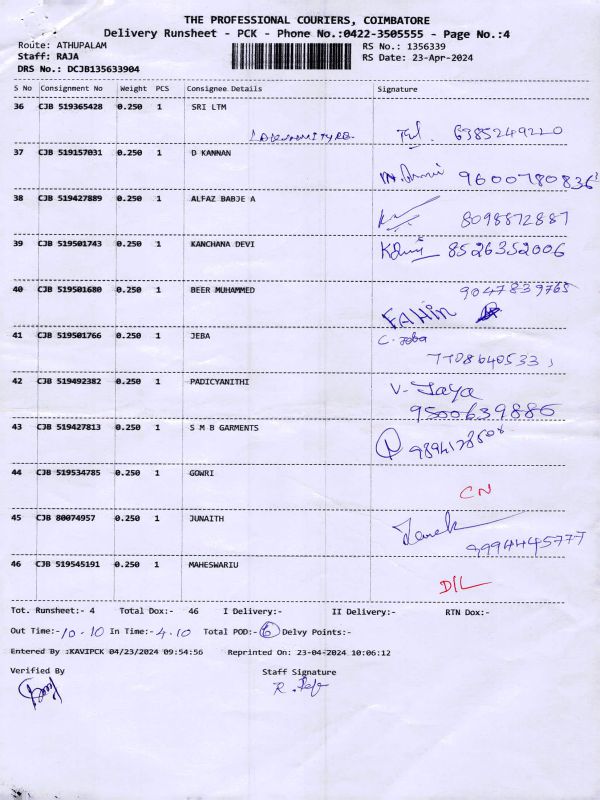 THE PROFESSIONAL COURIERS, COIMBATORE
Delivery Runsheet - PCK - Phone No.:0422-3505555 - Page No.:4
Route: ATHUPALAM RS No.: 1356339
Staff: RAJA RS Date: 23-Apr-2024
DRS No.: DCJB135633904
S No Consignment No Weight PCS Consignee Details Signature
36 CJB 519365428 0.250 1 SRI LTM
6385249220
37 CJB 519157031 0.250 1 D KANNAN
9600780836
38 CJB 519427889 0.250 1 ALFAZ BABJE A
8098872887
39 CJB 519501743 0.250 1 KANCHANA DEVI
8526352006
40 CJB 519501680 0.250 1 BEER MUHAMMED 9047839765
FAHIN
41 CJB 519501766 0.250 1 JEBA C. Jeba
7708640533
42 CJB 519492382 0.250 1 PADICYANITHI V- Jaya
9500639886
43 CJB 519427813 0.250 1 S M B GARMENTS
44 CJB 519534785 0.250 1 GOWRI
CN
45 CJB 80074957 0.250 1 JUNAITH
9994445777
46 CJB 519545191 0.250 1 MAHESWARIU
D/L
Tot. Runsheet:- 4 Total Dox:- 46 I Delivery:- II Delivery:- RTN Dox:-
Out Time:- 10-10 In Time:- 4.10 Total POD:- 6 Delvy Points:-
Entered By :KAVIPCK 04/23/2024 09:54:56 Reprinted On: 23-04-2024 10:06:12
Verified By Staff Signature